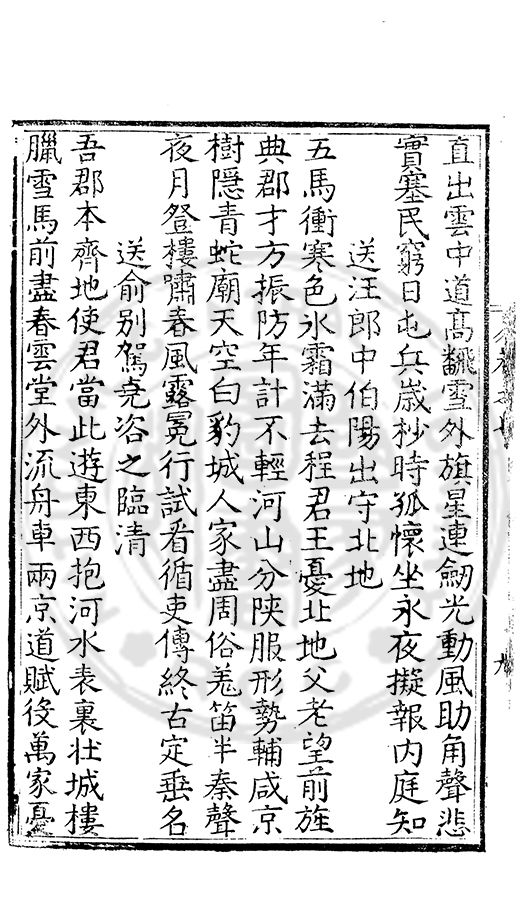 直出雲中道高飜雪外旗星連劒光動風助角聲悲
實塞民窮日屯兵歲杪時孤懷坐永夜擬報內庭知
送汪郎中伯陽出守北地
五馬衝寒色氷霜滿去程君王憂北地父老望前旌
典郡才方振防年計不輕河山分陜服形勢輔咸京
樹隱青蛇廟天空白豹城人家盡周俗羗笛半秦聲
夜月登樓嘯春風露冕行試看循吏傳終古定垂名
送俞别駕堯咨之臨清
吾郡本齊地使君當此遊東西抱河水表裏壮城樓
臘雪馬前盡春雲堂外流舟車兩京道賦役萬家憂